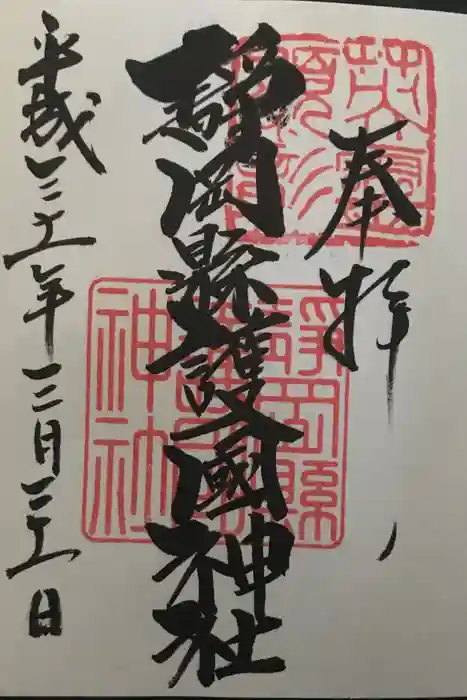 奉拝
靜岡縣護國神社
平成三十一年三月三十一日
靜岡縣
護國
神社